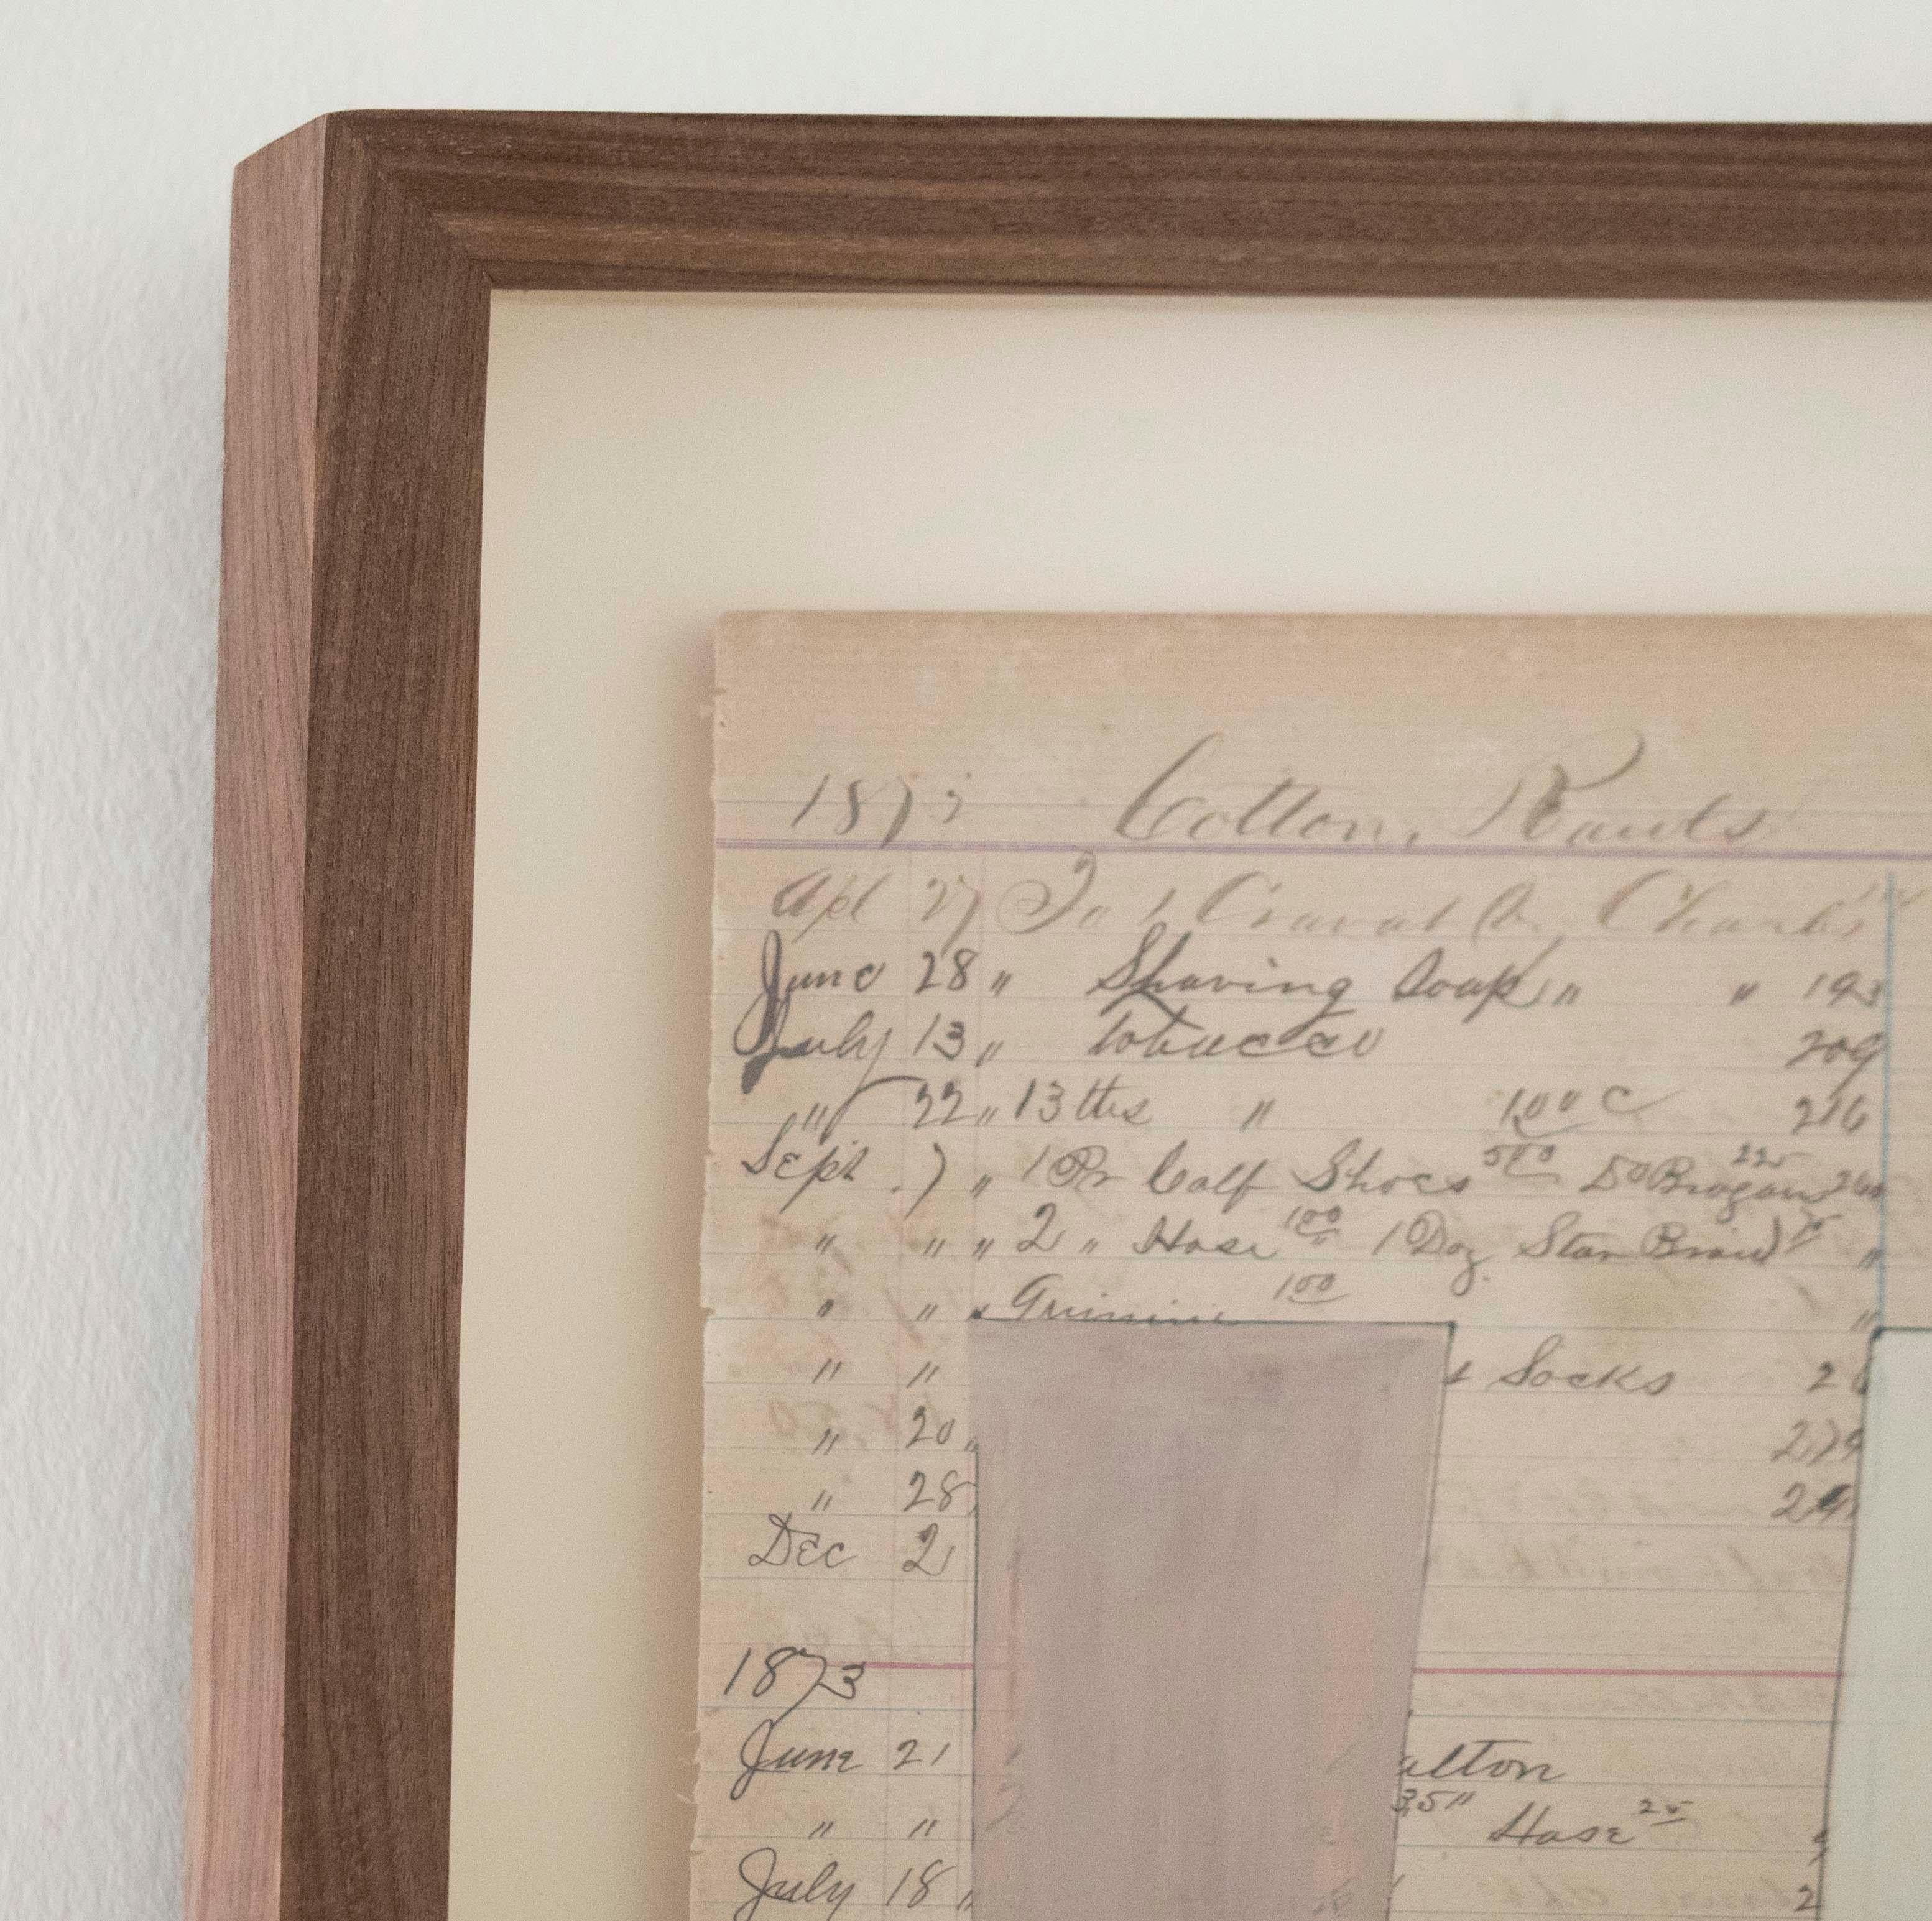 187
Cotton,
Apl 27 To 1 Cravat
June 28 " Shaving Soap " "
July 13 " Tobacco 209
" 22 " 13 " 1 00 C 216
Sept 7 " 1 Pr Calf Shoes 5 00 Do Brogans 2 25
" " " 2 " Hose 1 00 1 Doz Star Braid "
" " " 1 00 "
" " Socks 2
" 20 " 279
" 28
Dec 2
1873
June 21 alton
" " 35 " Hose 25
July 18 " 2